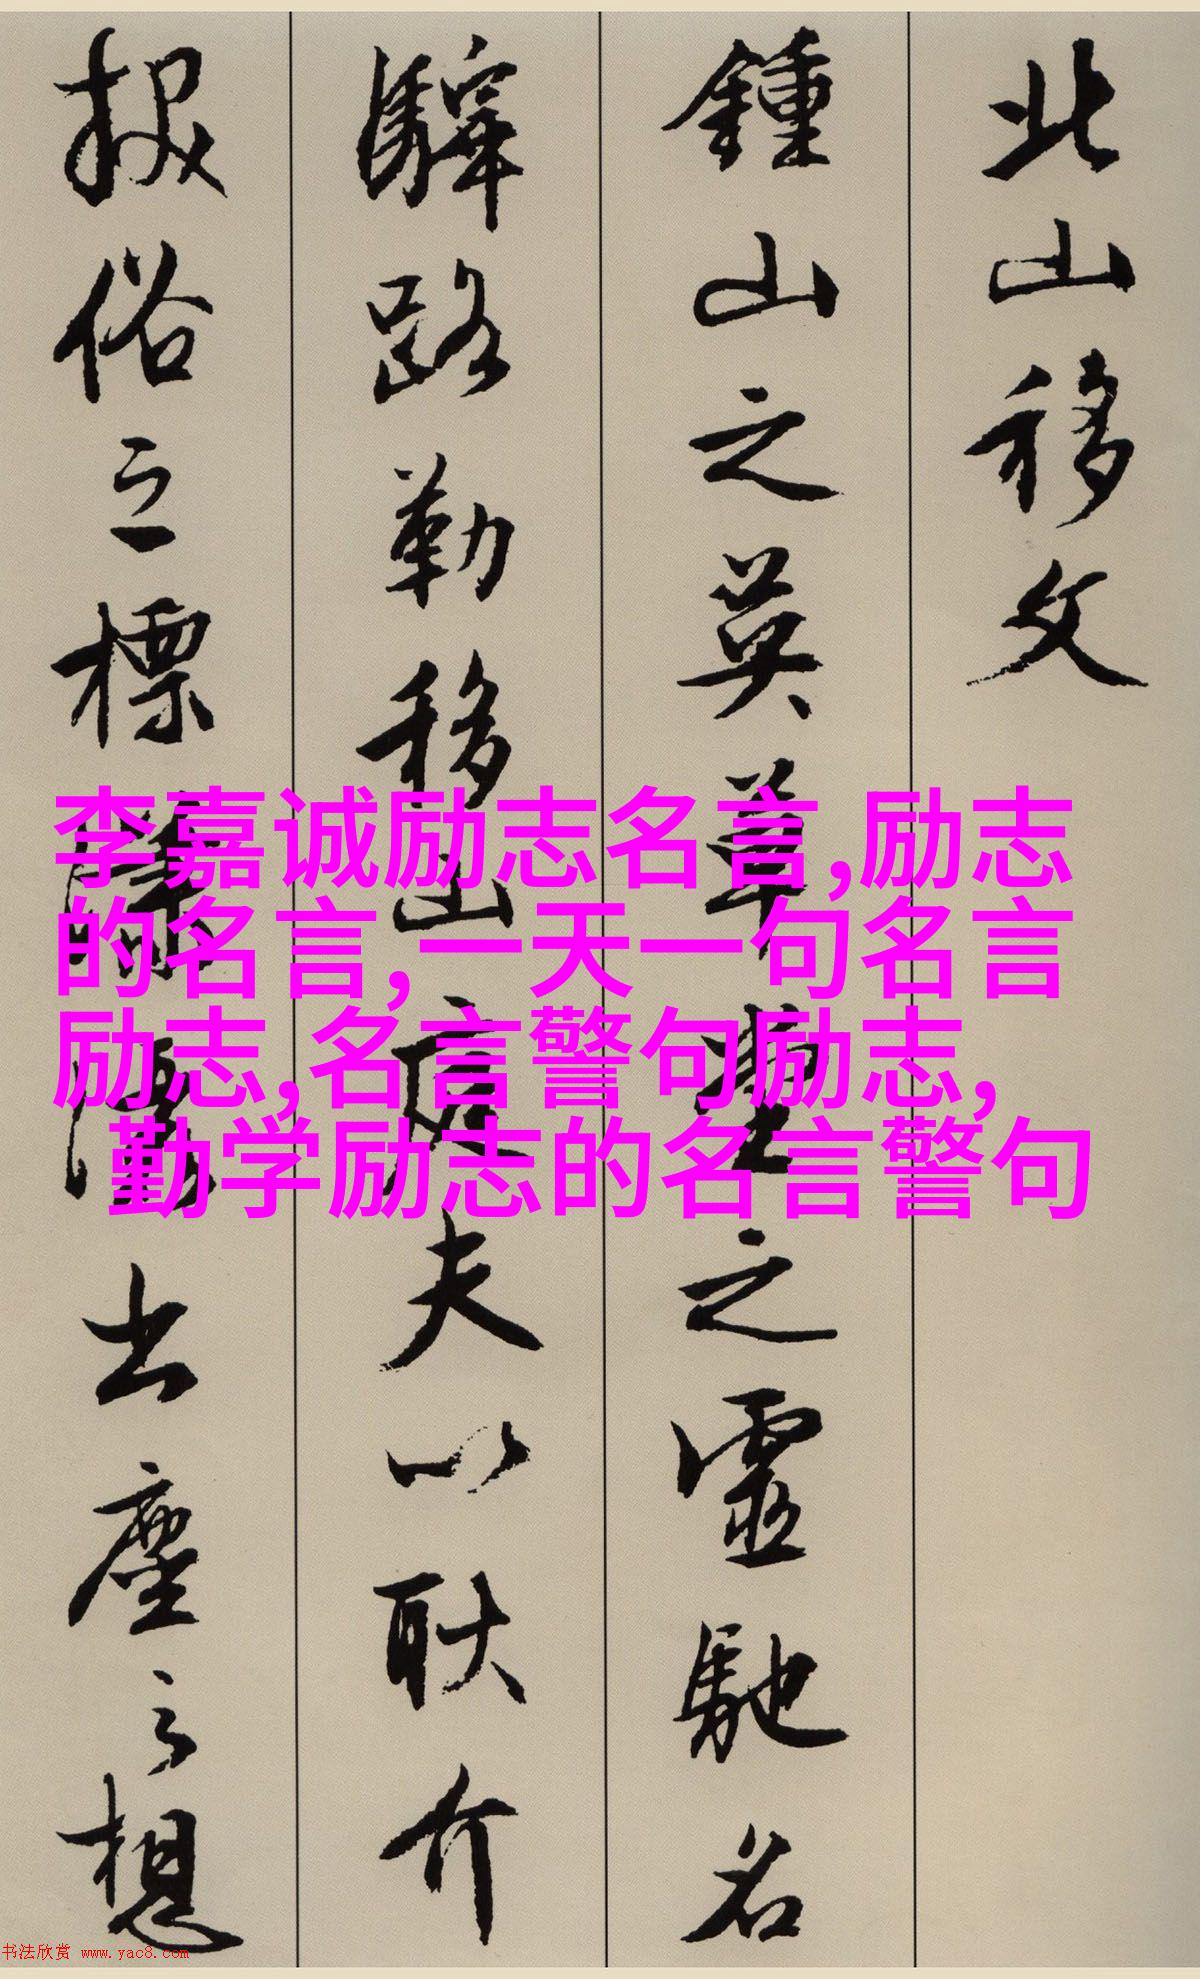 北山移文
鍾山之英草堂之靈馳名
驛路勒移山庭夫以耿介
拔俗之標瀟灑出塵之想
李嘉诚励志名言,励志
的名言,一天一句名言
励志,名言警句励志,
勤学励志的名言警句
书法欣赏 www.yac8.com